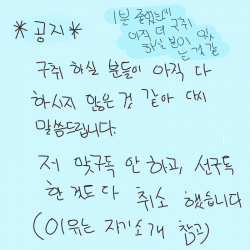 *공지*
1분 줄었는데
아직 더 구취
하실 분이 있
는 것 같
구취 하실 분들이 아직 다
하시지 않은 것 같아 다시
말씀드립니다.
저 맞구독 안 하고, 선구독
한 것도 다 취소 했습니다
(이유는 자기소개 참고)